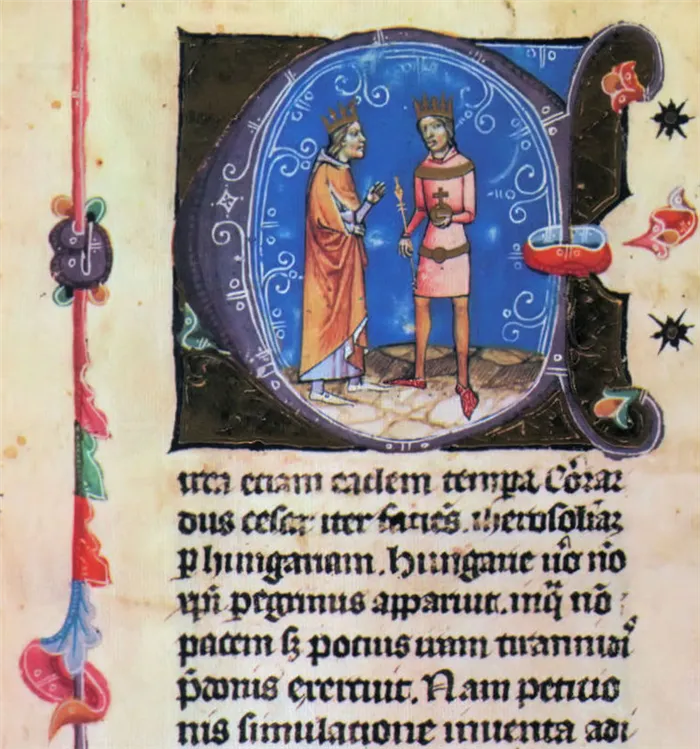 Circa etiam eadem tempa Cōra
dus cesar iter faciēs iherosolimā
ꝑ hungariam. hungarie uō nō
xp̄i pegrinus apparuit. in q̄ nō
pacem sꝫ pocius iram tirannidi
p̄donis exercuit. Nam peticio
nis simulacione inuenta adi